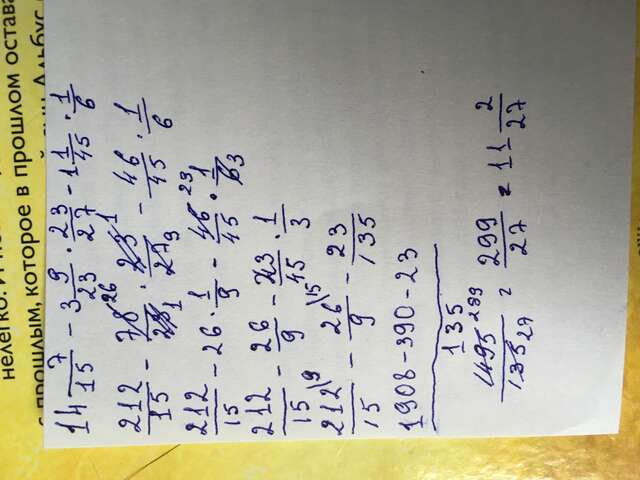 нелегко. И по
с прошлым, которое в прошлом остава
Альбус
14 7/15 - 3 9/23 · 23/27 - 1 1/45 · 1/6
212/15 - 78/23 26 1 · 23/27 1 9 - 46/45 · 1/6
212/15 - 26 · 1/9 - 46/45 23 · 1/6 3
212/15 - 26/9 - 23/45 · 1/3
212/15 \9 - 26/9 \15 - 23/135
1908 - 390 - 23
135
1495/135 299 27 = 299/27 = 11 2/27